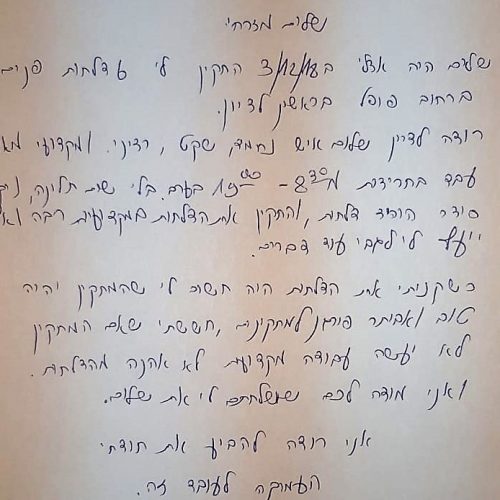 שלום מזרחי
שלום היה אצלי ב 3/12/18 התקין לי 6 דלתות פנים
ברחוב פופל בראשון לציון.
רוצה לציין שלום איש נחמד, שקט, רציני. ומקצועי
עבד בחריצות מ 8:30 - בערב. בלי שום תלונה,
סודר הוריד דלתות, והתקין את הדלתות במקצועיות רבה
ייעץ לי לגבי עוד דברים.
כשקניתי את הדלתות היה חשוב לי שהמתקין יהיה
טוב ואביתר פירגן למתקינים, חששתי שאם המתקין
לא יעשה עבודה מקצועית לא אהנה מהדלתות.
ואני מודה לכם ששלחתם לי את שלום.
אני רוצה להביע את תודתי
העמוקה לעובד זה.